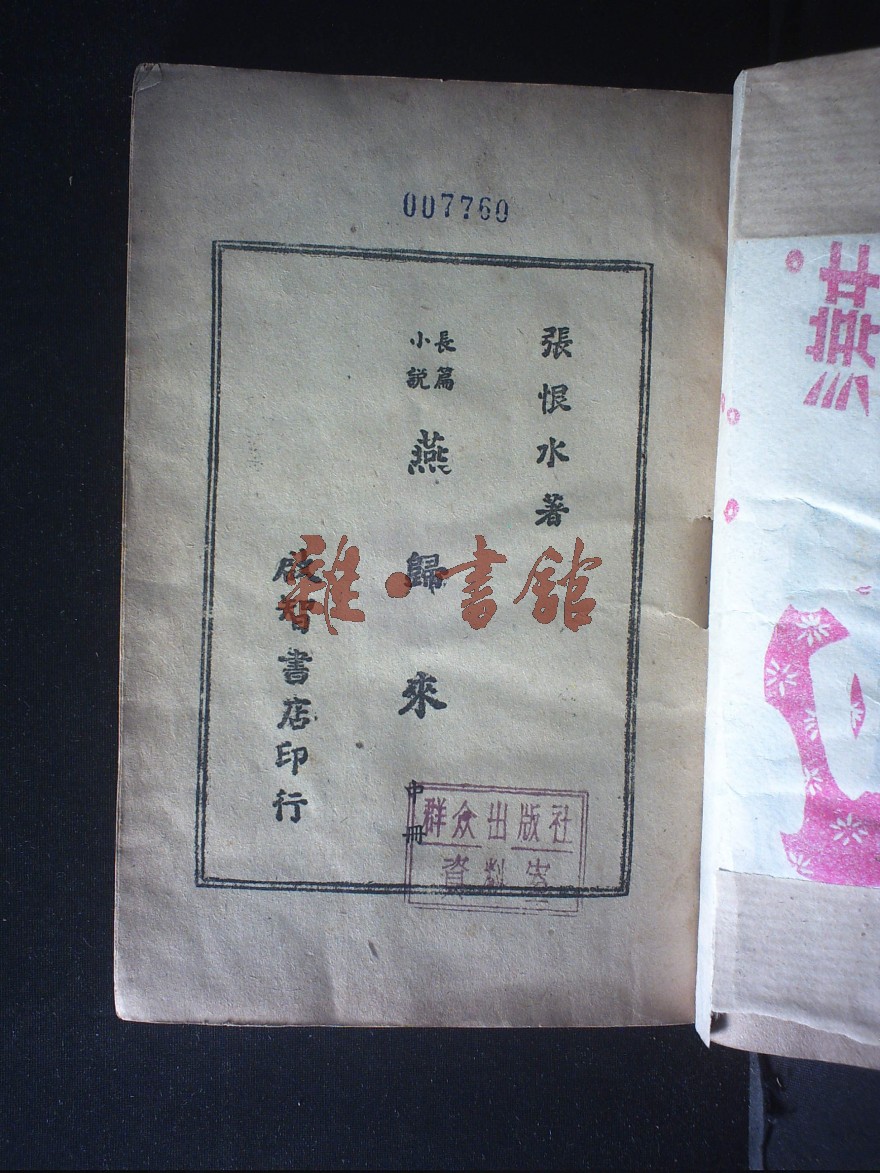 007760
張恨水著
長篇
小説
燕歸來
中冊
啟智書店印行
群众出版社
資料室
雜·書館